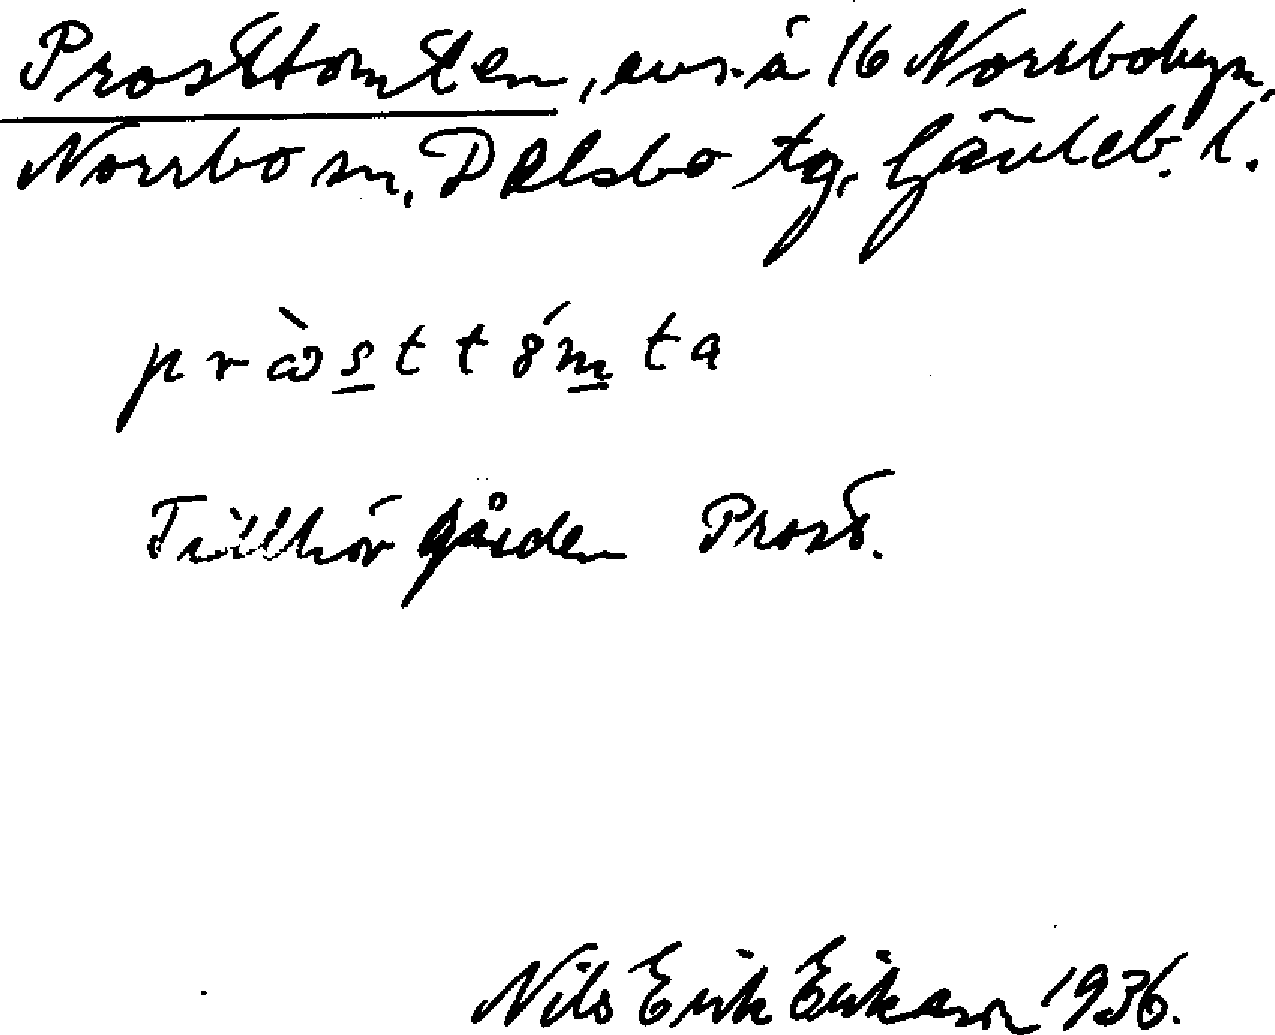 Prosttomten, avs. å 16 Norrbobyn,
Norrbo sn, Delsbo tg, Gävleb. l.
pràsttómta
Tillhör gården Prost.
Nils Erik Erikson 1936.